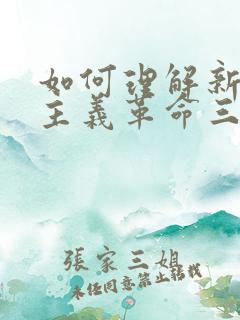 如何理解新
主義革命三
張家三姐
未经同意禁止转载